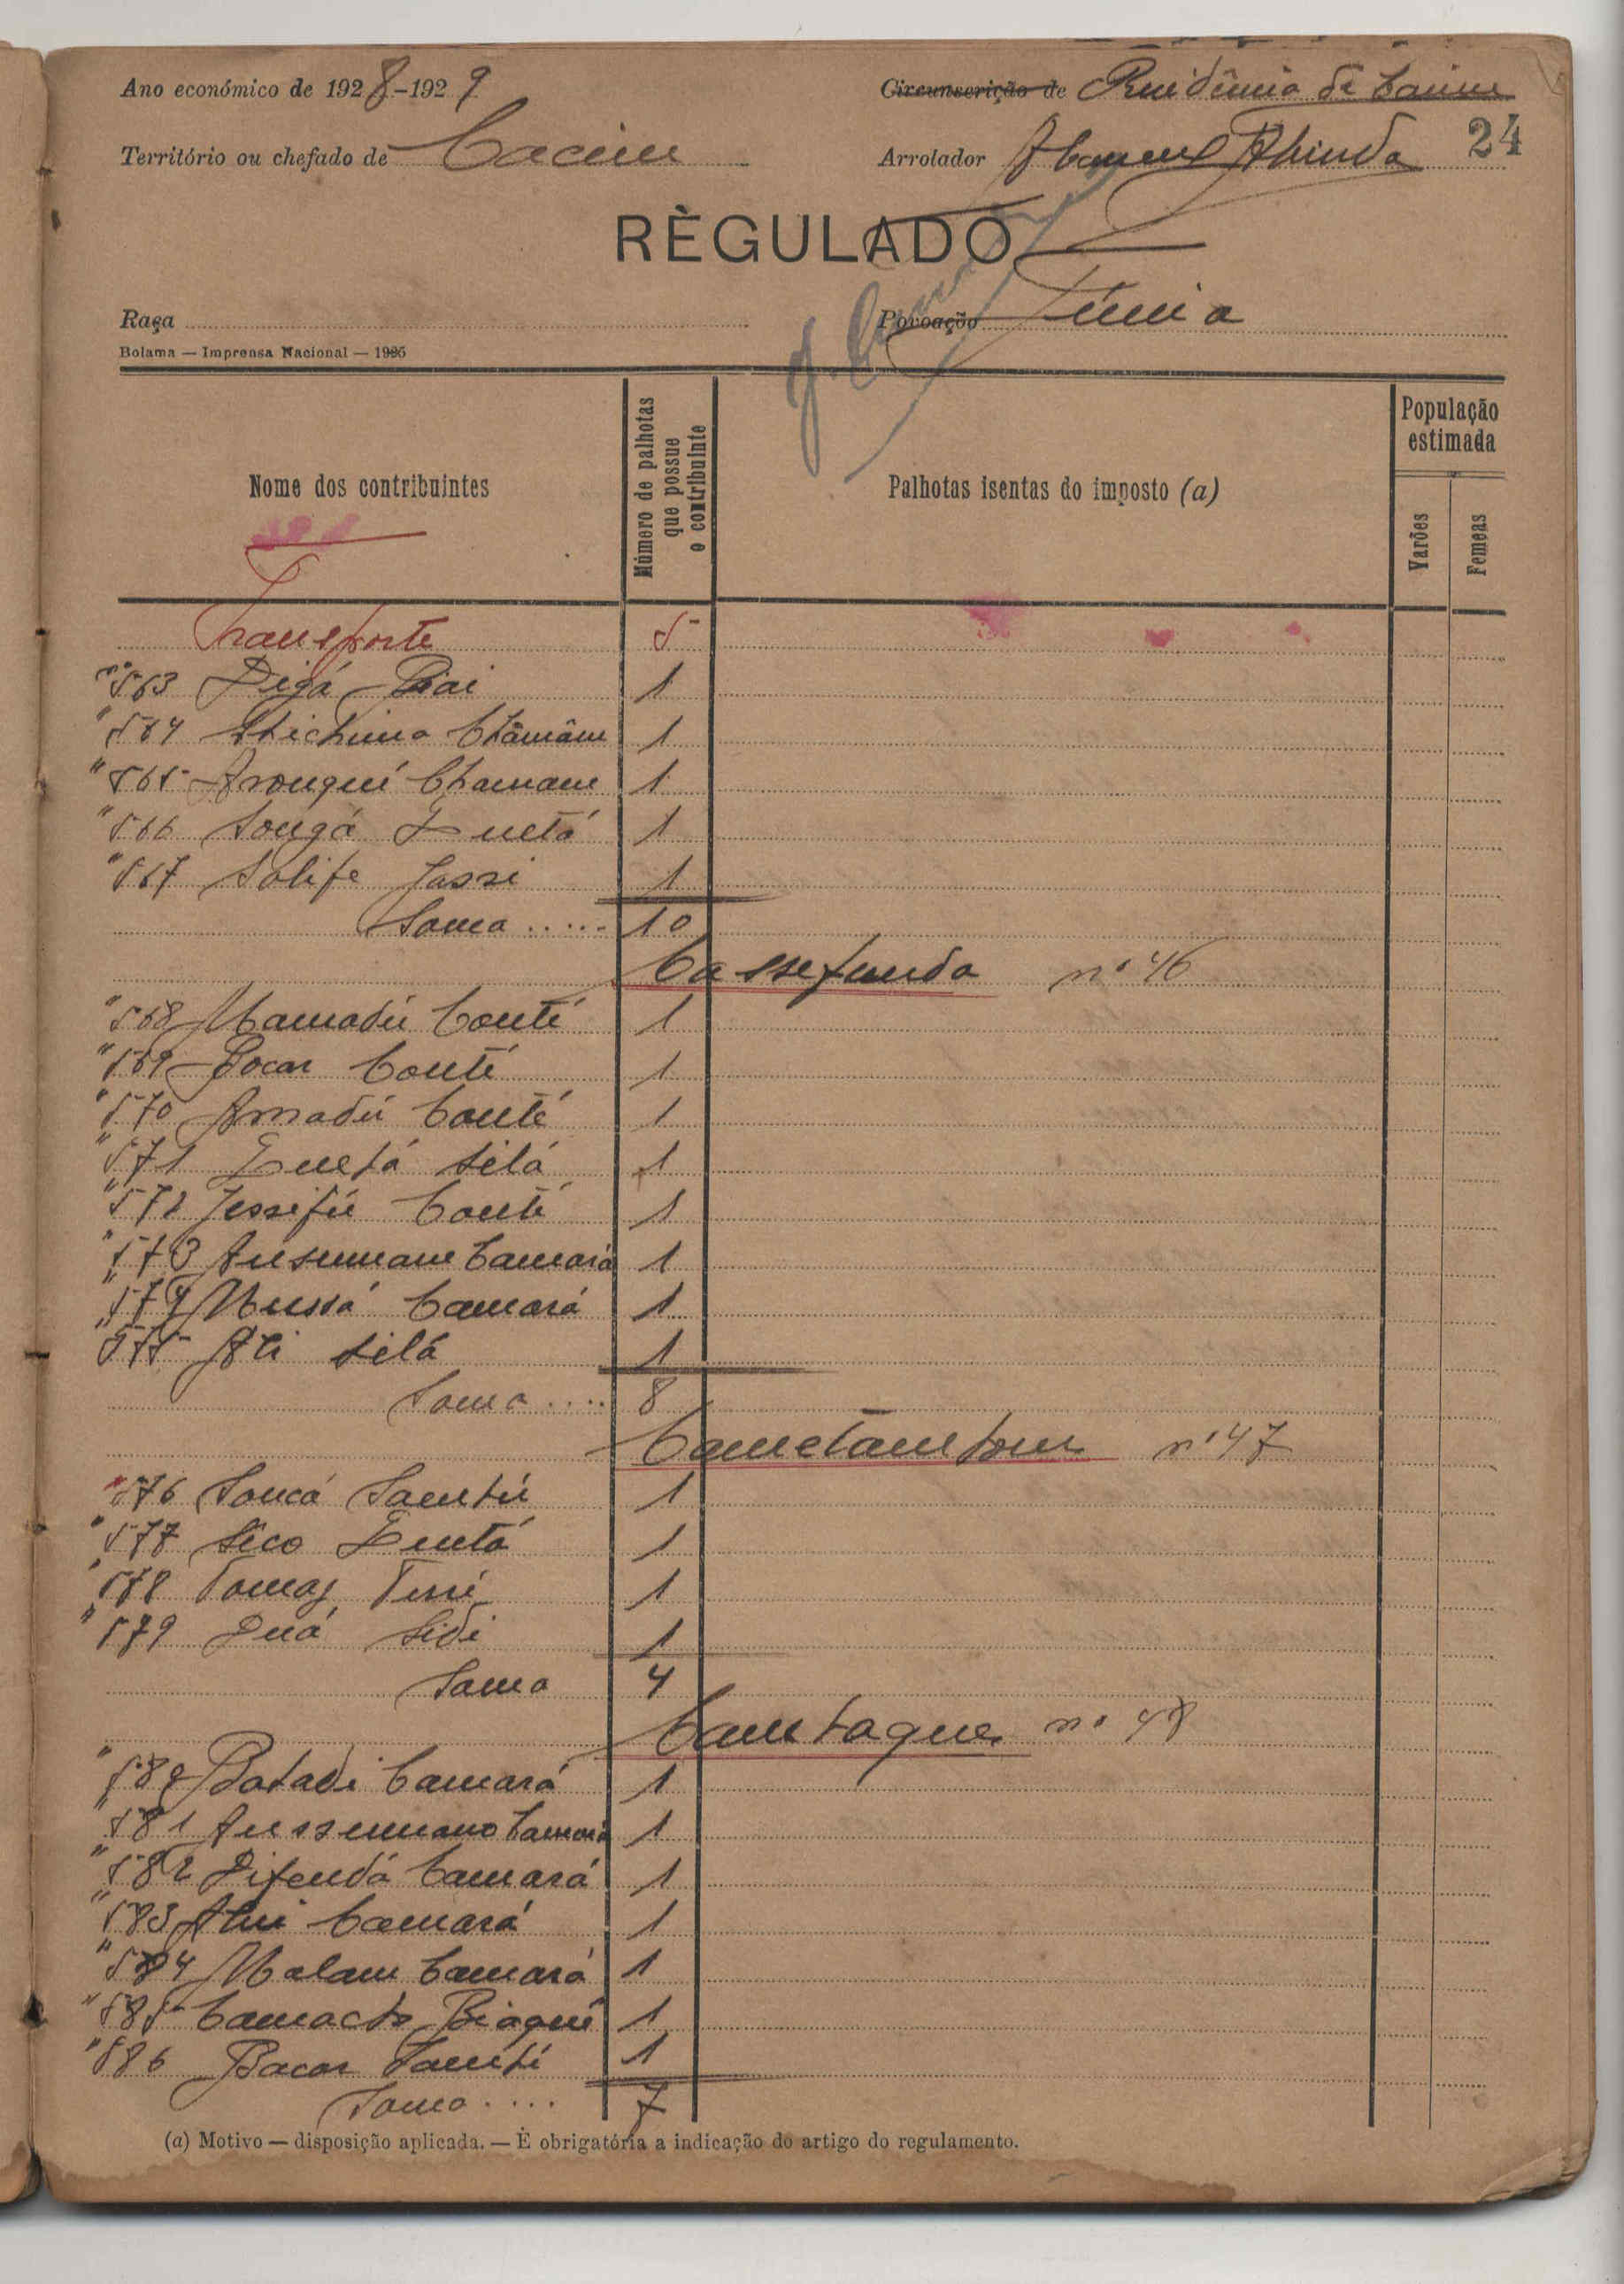 Ano económico de 1928-1929
Circunscrição de Residência de Cacine
Território ou chefado de Cacine
Arrolador
24
RÈGULADO
Raça
Povoação
Bolama — Imprensa Nacional — 1925
Nome dos contribuintes
Número de palhotas que possue o contribuinte
Palhotas isentas do imposto (a)
População estimada
Varões
Femeas
Transporte 5
" 563 Digá 1
" 564 1
" 565 Arouqué Chamane 1
" 566 Songá 1
" 567 Salife Jassi 1
Soma ..... 10
Cassefunda nº 46
" 568 Mamadú Conté 1
" 569 Bocar Conté 1
" 570 Amadú Conté 1
" 571 Silá 1
" 572 Jessifú Conté 1
" 573 Ansumane Camará 1
" 574 Mussá Camará 1
" 575 Ali Silá 1
Soma .... 8
nº 47
" 576 Soncá 1
" 577 Sico 1
" 578 Tomaz Turé 1
" 579 Duá Sidi 1
Soma 4
nº 48
" 580 Camará 1
" 581 Anssumano Camará 1
" 582 Difendá Camará 1
" 583 Camará 1
" 584 Malam Camará 1
" 585 Camacho Biagué 1
" 586 Bacar 1
Soma .... 7
(a) Motivo — disposição aplicada. — È obrigatória a indicação do artigo do regulamento.